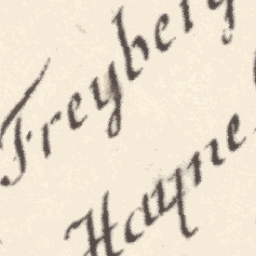 Freyberg
Hayne